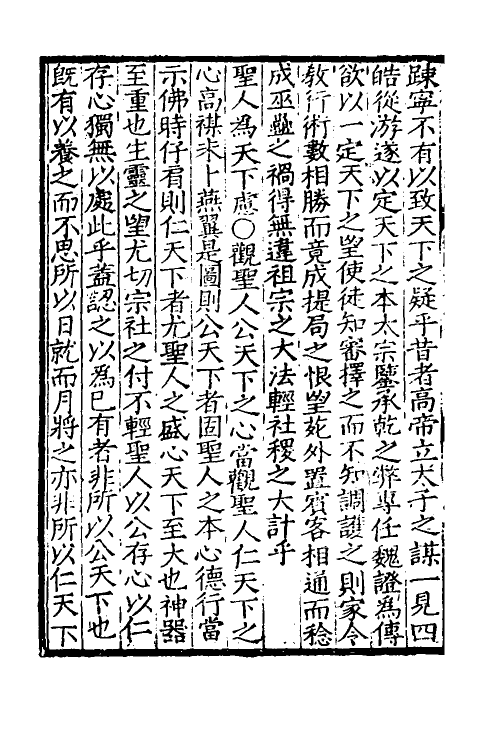 踈寧不有以致天下之疑乎昔者高帝立太子之謀一見四
皓從游遂以定天下之本太宗鑒承乾之弊專任魏證為傳
欲以一定天下之望使徒知審擇之而不知調護之則家令
敎行術數相勝而竟成提局之恨望𫟍外置賓客相通而稔
成巫蠱之禍得無違祖宗之大法輕社稷之大計乎
聖人為天下慮○觀聖人公天下之心當觀聖人仁天下之
心高禖未卜燕翼是圖則公天下者固聖人之本心德行當
示佛時仔肩則仁天下者尤聖人之盛心天下至大也神器
至重也生靈之望尤切宗社之付不輕聖人以公存心以仁
存心獨無以處此乎蓋認之以為已有者非所以公天下也
旣有以養之而不思所以日就而月將之亦非所以仁天下